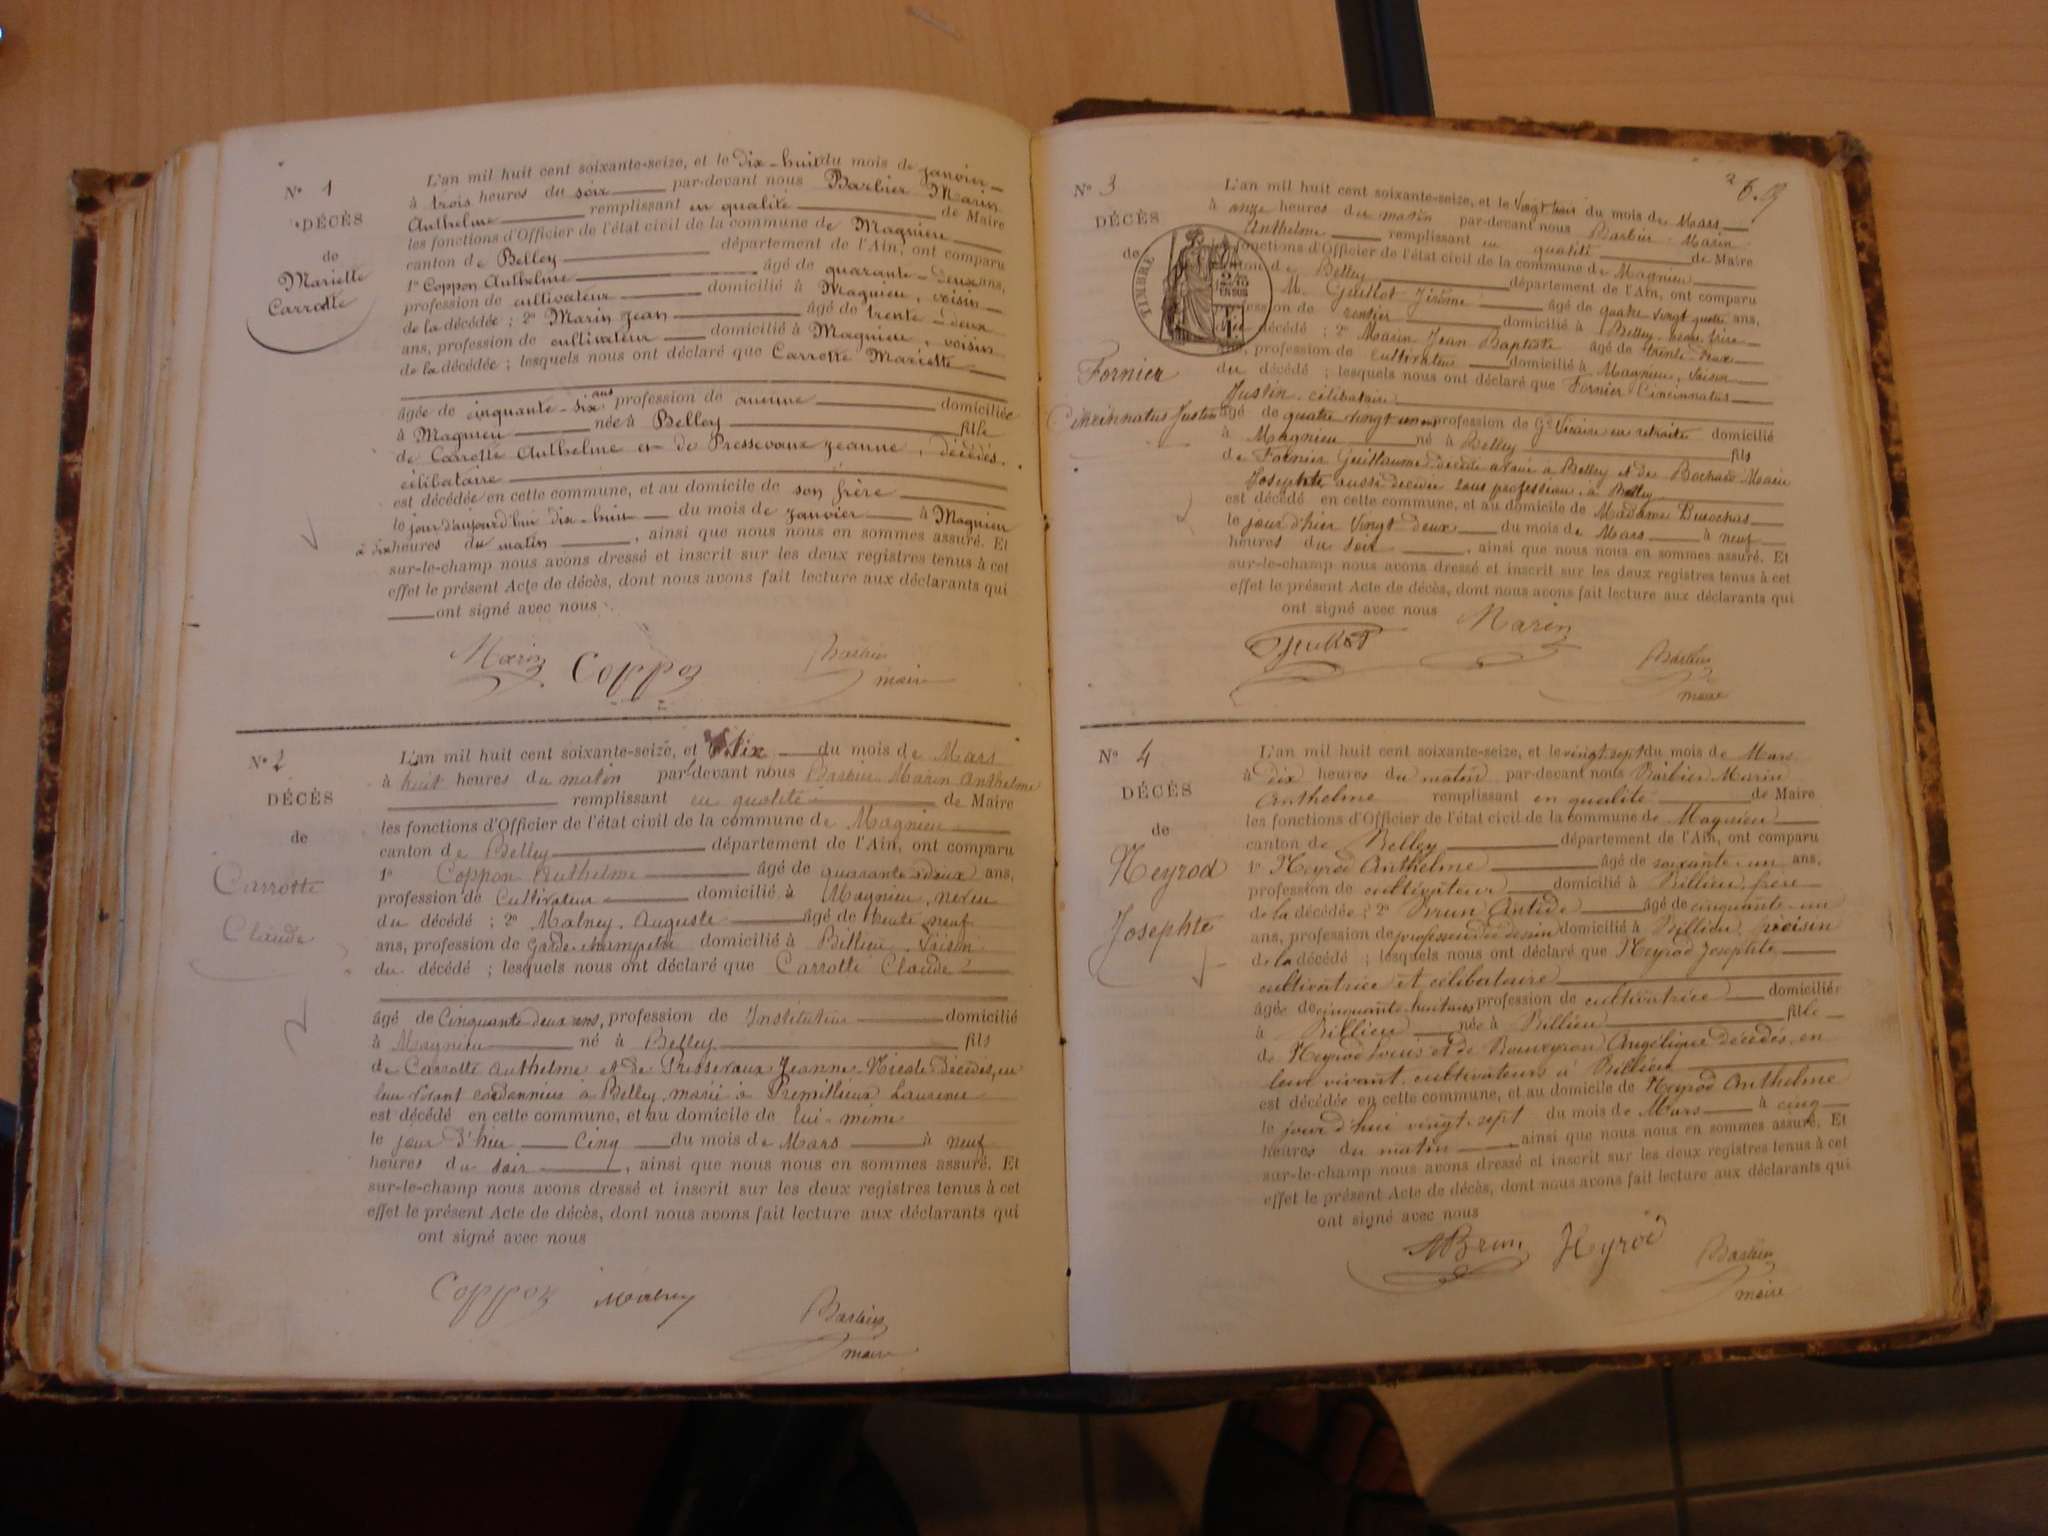 N° 1
DÉCÈS
de
Mariette
Carrotte
L'an mil huit cent soixante-seize, et le dix-huit du mois de janvier
à trois heures du soir par-devant nous Barbier Marin
Anthelme remplissant en qualité de Maire
les fonctions d'Officier de l'état civil de la commune de Magnieu
canton de Belley département de l'Ain, ont comparu
1° Coppon Anthelme âgé de quarante-deux ans,
profession de cultivateur domicilié à Magnieu, voisin
de la décédée ; 2° Marin Jean âgé de trente-deux
ans, profession de cultivateur domicilié à Magnieu, voisin
de la décédée ; lesquels nous ont déclaré que Carrotte Mariette
âgée de cinquante-six ans profession de aucune domiciliée
à Magnieu née à Belley fille
de Carrotte Anthelme et de Pressevaux Jeanne, décédés.
célibataire
est décédée en cette commune, et au domicile de son frère
le jour d'aujourd'hui dix-huit du mois de janvier à Magnieu
à six heures du matin, ainsi que nous nous en sommes assuré. Et
sur-le-champ nous avons dressé et inscrit sur les deux registres tenus à cet
effet le présent Acte de décès, dont nous avons fait lecture aux déclarants qui
ont signé avec nous
Marin Coppon Barbier
maire
N° 2
DÉCÈS
de
Carrotte
Claude
L'an mil huit cent soixante-seize, et le six du mois de Mars
à huit heures du matin par-devant nous Barbier Marin Anthelme
remplissant en qualité de Maire
les fonctions d'Officier de l'état civil de la commune de Magnieu
canton de Belley département de l'Ain, ont comparu
1° Coppon Anthelme âgé de quarante deux ans,
profession de Cultivateur domicilié à Magnieu, neveu
du décédé ; 2° Malney Auguste âgé de trente neuf
ans, profession de Garde-champêtre domicilié à Billieu, Voisin
du décédé ; lesquels nous ont déclaré que Carrotte Claude
âgé de Cinquante deux ans, profession de Instituteur domicilié
à Magnieu né à Belley fils
de Carrotte Anthelme et de Pressevaux Jeanne-Nicole décédés, en
leur vivant cordonniers à Belley, marié à Premillieux Laurence
est décédé en cette commune, et au domicile de lui-même
le jour d'hier cinq du mois de Mars à neuf
heures du soir, ainsi que nous nous en sommes assuré. Et
sur-le-champ nous avons dressé et inscrit sur les deux registres tenus à cet
effet le présent Acte de décès, dont nous avons fait lecture aux déclarants qui
ont signé avec nous
Coppon Malney Barbier
maire
N° 3
DÉCÈS
de
Fornier
Cincinnatus Justin
TIMBRE
L'an mil huit cent soixante-seize, et le Vingt trois du mois de Mars
à onze heures du matin par-devant nous Barbier Marin
Anthelme remplissant en qualité de Maire
fonctions d'Officier de l'état civil de la commune de Magnieu
de Belley département de l'Ain, ont comparu
M. Guillot Jérôme âgé de quatre vingt quatre ans,
profession de rentier domicilié à Belley, beau frère
du décédé ; 2° Marin Jean Baptiste âgé de trente-deux
ans, profession de Cultivateur domicilié à Magnieu, Voisin
du décédé ; lesquels nous ont déclaré que Fornier Cincinnatus
Justin, célibataire
âgé de quatre vingt un ans profession de Gd Vicaire en retraite domicilié
à Magnieu né à Belley fils
de Fornier Guillaume décédé avoué à Belley et de Bochard Marie
Josephte aussi décédée sans profession à Belley
est décédé en cette commune, et au domicile de Madame
le jour d'hier Vingt deux du mois de Mars à neuf
heures du soir, ainsi que nous nous en sommes assuré. Et
sur-le-champ nous avons dressé et inscrit sur les deux registres tenus à cet
effet le présent Acte de décès, dont nous avons fait lecture aux déclarants qui
ont signé avec nous Marin
Guillot Barbier
maire
N° 4
DÉCÈS
de
Neyrod
Josephte
L'an mil huit cent soixante-seize, et le vingt-sept du mois de Mars
à dix heures du matin par-devant nous Barbier Marin
Anthelme remplissant en qualité de Maire
les fonctions d'Officier de l'état civil de la commune de Magnieu
canton de Belley département de l'Ain, ont comparu
1° Neyrod Anthelme âgé de soixante-un ans,
profession de cultivateur domicilié à Billieu, frère
de la décédée ; 2° Brun Antide âgé de cinquante-un
ans, profession de professeur de dessin domicilié à Billieu, voisin
de la décédé ; lesquels nous ont déclaré que Neyrod Josephte
cultivatrice et célibataire
âgée de cinquante-huit ans profession de cultivatrice domiciliée
à Billieu née à Billieu fille
de Neyrod Louis et de Bouveyron Angélique décédés, en
leur vivant cultivateurs à Billieu
est décédée en cette commune, et au domicile de Neyrod Anthelme
le jour d'hui vingt-sept du mois de Mars à cinq
heures du matin, ainsi que nous nous en sommes assuré. Et
sur-le-champ nous avons dressé et inscrit sur les deux registres tenus à cet
effet le présent Acte de décès, dont nous avons fait lecture aux déclarants qui
ont signé avec nous
ABrun Neyrod Barbier
maire